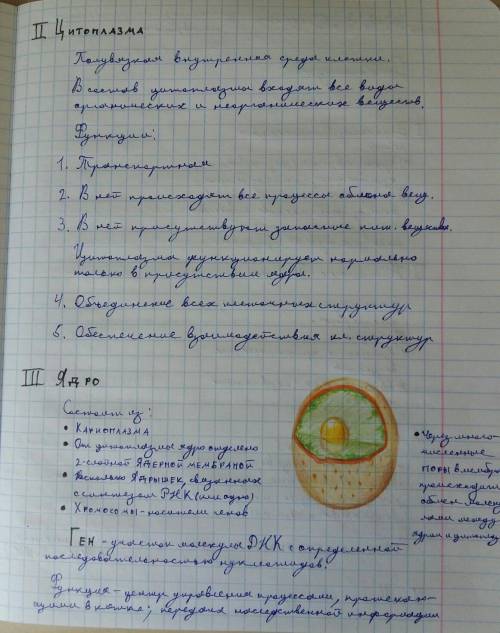 II Цитоплазма
Полувязкая внутренняя среда клетки.
В состав цитоплазмы входят все виды
органических и неорганических веществ.
Функции:
1. Транспортная
2. В ней происходят все процессы обмена вещ.
3. В ней присутствуют запасные пит. вещества.
Цитоплазма функционирует нормально
только в присутствии ядра.
4. Объединение всех клеточных структур
5. Обеспечение взаимодействия кл. структур
III Ядро
Состоит из:
• Кариоплазма
• От цитоплазмы ядро отделено
2-слойной ядерной мембраной
• Несколько ядрышек, связанных
с синтезом РНК (или одно)
• Хромосомы - носители генов
• Через много-
численные
поры в мембр
происходит
обмен молеку
лами между
ядром и цитоплаз
Ген - участок молекулы ДНК с определенной
последовательностью нуклеотидов.
Функция - центр управления процессами, протекаю-
щими в клетке; передача наследственной информации